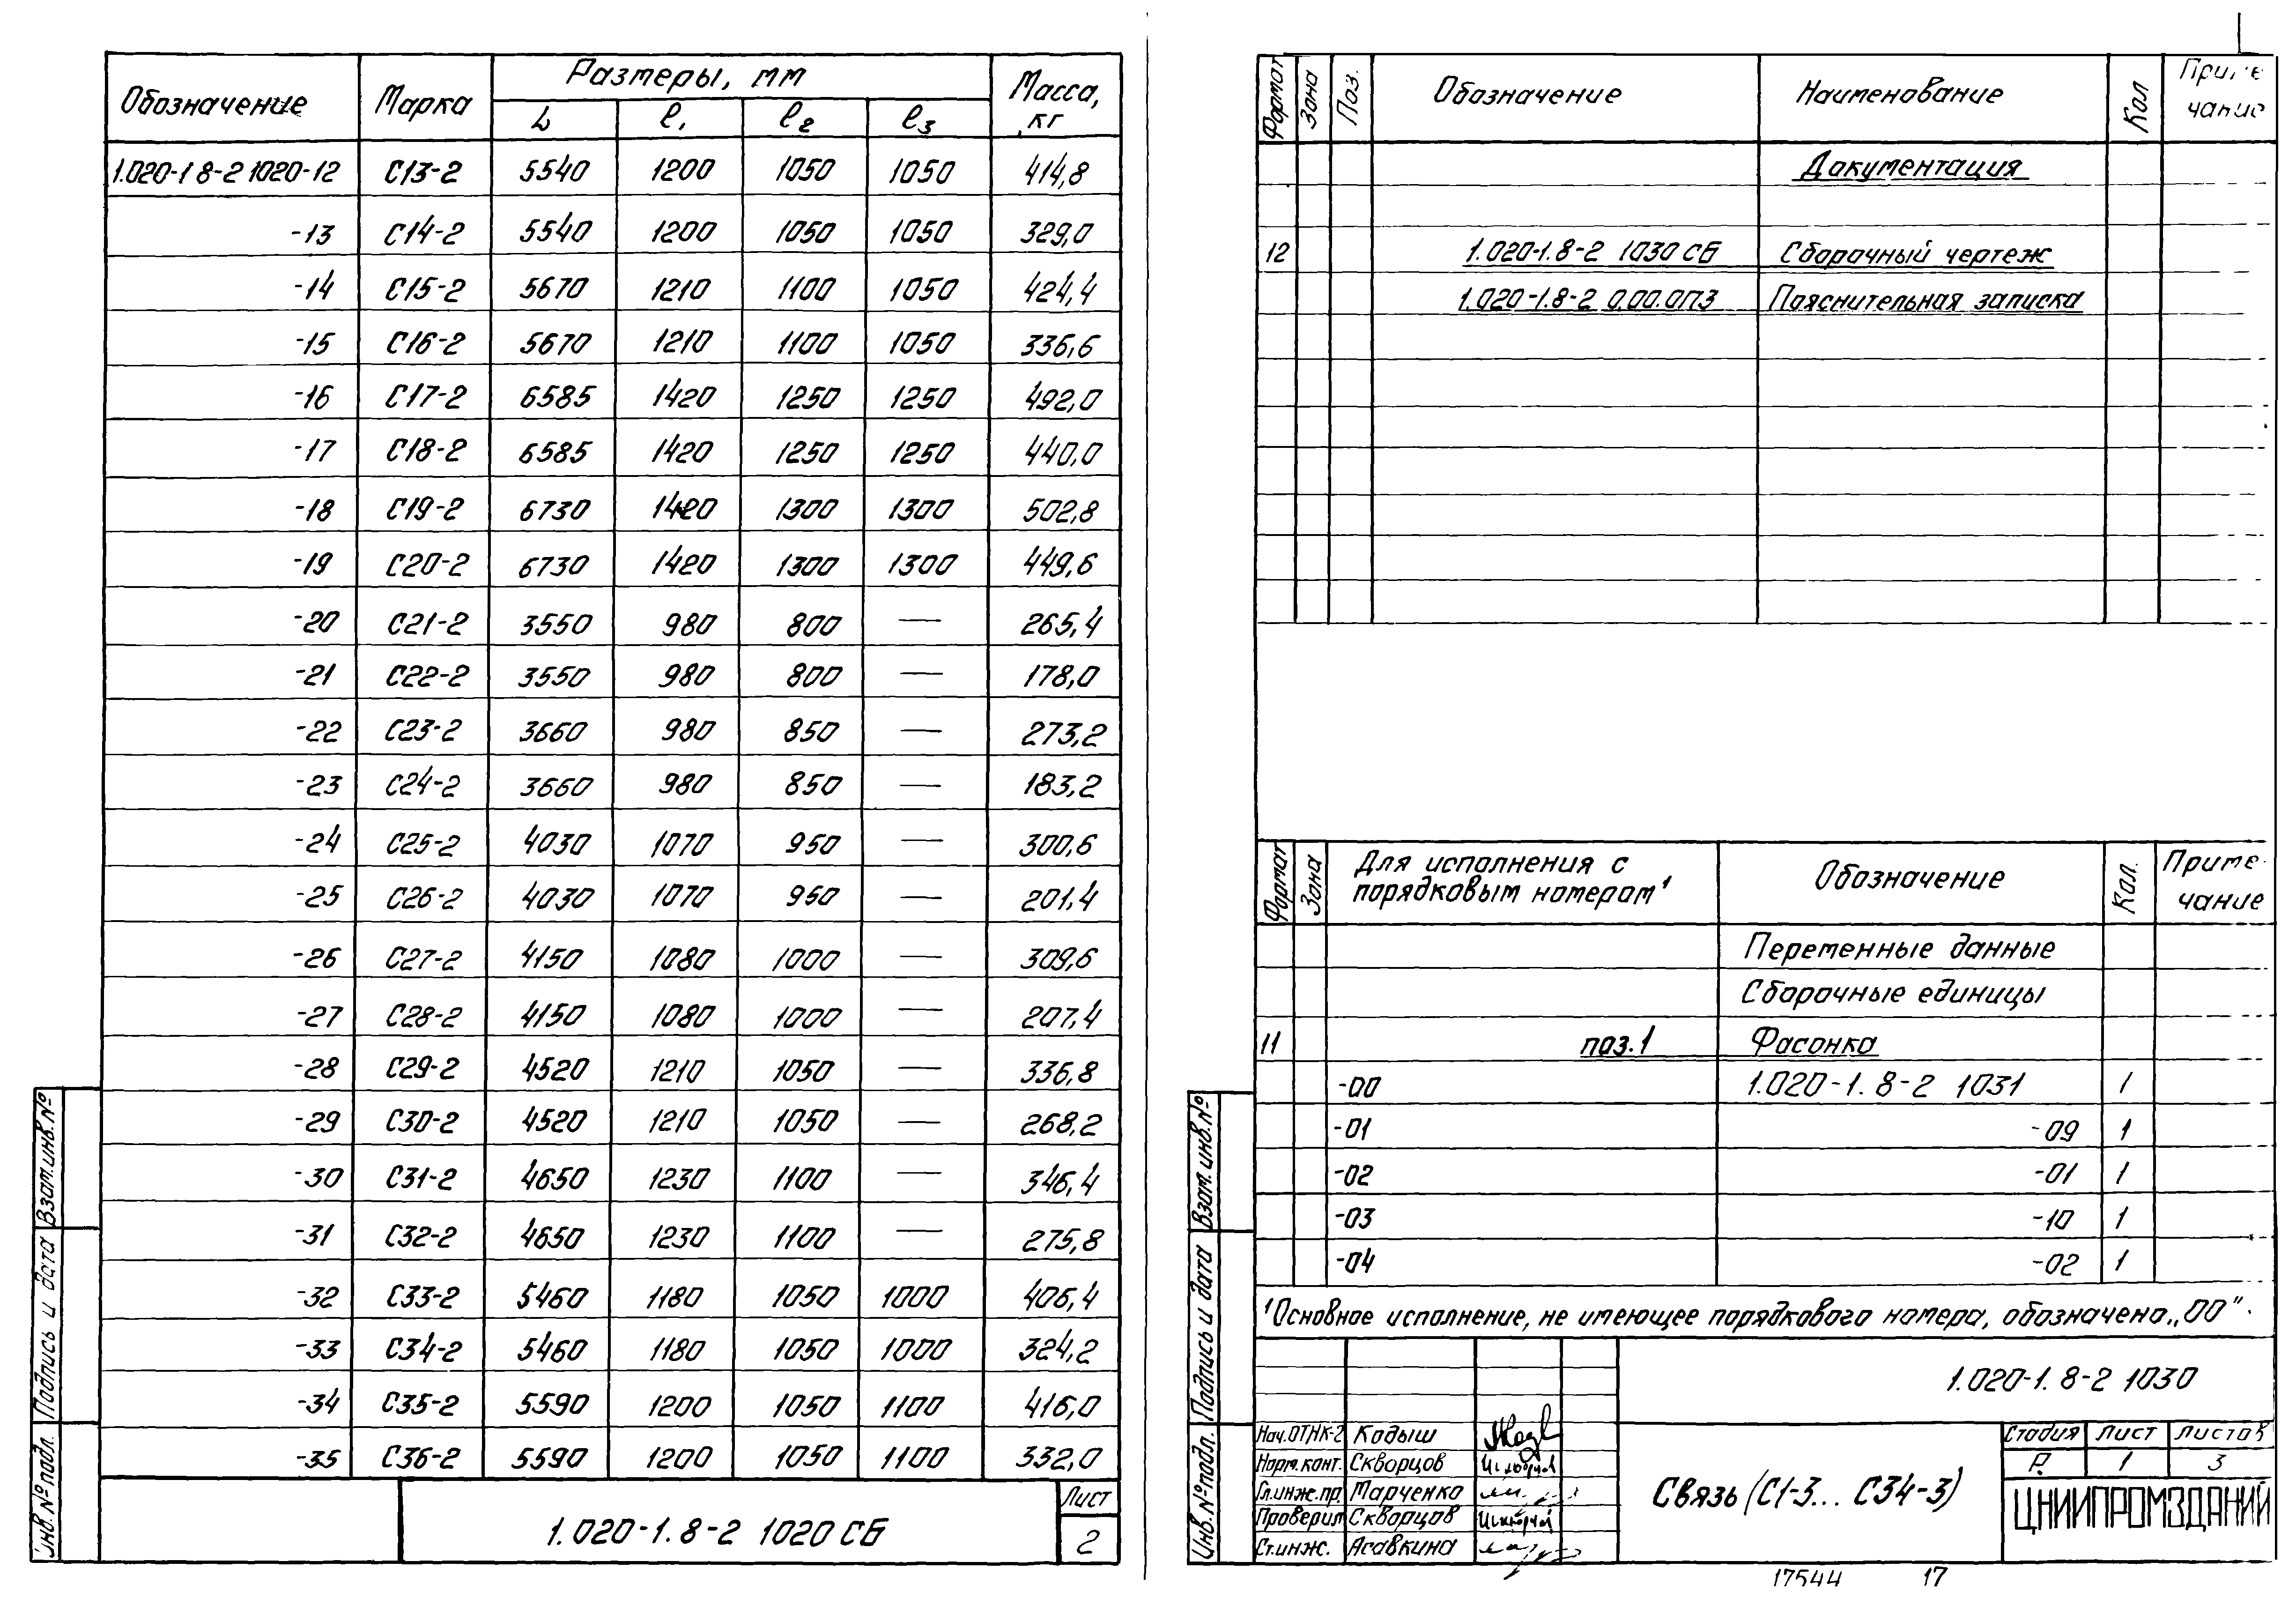 Обозначение Марка Размеры, мм Масса, кг
L ℓ1 ℓ2 ℓ3
1.020-1 8-2 1020-12 С13-2 5540 1200 1050 1050 414,8
-13 С14-2 5540 1200 1050 1050 329,0
-14 С15-2 5670 1210 1100 1050 424,4
-15 С16-2 5670 1210 1100 1050 336,6
-16 С17-2 6585 1420 1250 1250 492,0
-17 С18-2 6585 1420 1250 1250 440,0
-18 С19-2 6730 1420 1300 1300 502,8
-19 С20-2 6730 1420 1300 1300 449,6
-20 С21-2 3550 980 800 — 265,4
-21 С22-2 3550 980 800 — 178,0
-22 С23-2 3660 980 850 — 273,2
-23 С24-2 3660 980 850 — 183,2
-24 С25-2 4030 1070 950 — 300,6
-25 С26-2 4030 1070 950 — 201,4
-26 С27-2 4150 1080 1000 — 309,6
-27 С28-2 4150 1080 1000 — 207,4
-28 С29-2 4520 1210 1050 — 336,8
-29 С30-2 4520 1210 1050 — 268,2
-30 С31-2 4650 1230 1100 — 346,4
-31 С32-2 4650 1230 1100 — 275,8
-32 С33-2 5460 1180 1050 1000 406,4
-33 С34-2 5460 1180 1050 1000 324,2
-34 С35-2 5590 1200 1050 1100 416,0
-35 С36-2 5590 1200 1050 1100 332,0
1.020-1.8-2 1020 СБ
Лист
2
Взам.инв.№
Подпись и дата
Инв.№подл.
Формат Зона Поз. Обозначение Наименование Кол Приме
чание
Документация
12 1.020-1.8-2 1030 СБ Сборочный чертеж
1.020-1.8-2 0.00.0ПЗ Пояснительная записка
Формат Зона Для исполнения с Обозначение Кол. Приме-
порядковым номером¹ чание
Переменные данные
Сборочные единицы
11 поз.1 Фасонка
-00 1.020-1.8-2 1031 1
-01 -09 1
-02 -01 1
-03 -10 1
-04 -02 1
¹Основное исполнение, не имеющее порядкового номера, обозначено „00".
1.020-1.8-2 1030
Нач.ОТНК-2 Кодыш
Норм.конт. Скворцов
Гл.инж.пр. Марченко
Проверил Скворцов
Ст.инж. Асавкина
Связь (С1-3... С34-3)
Стадия Лист Листов
Р. 1 3
ЦНИИПРОМЗДАНИЙ
Взам.инв.№
Подпись и дата
Инв.№подл.
17544 17